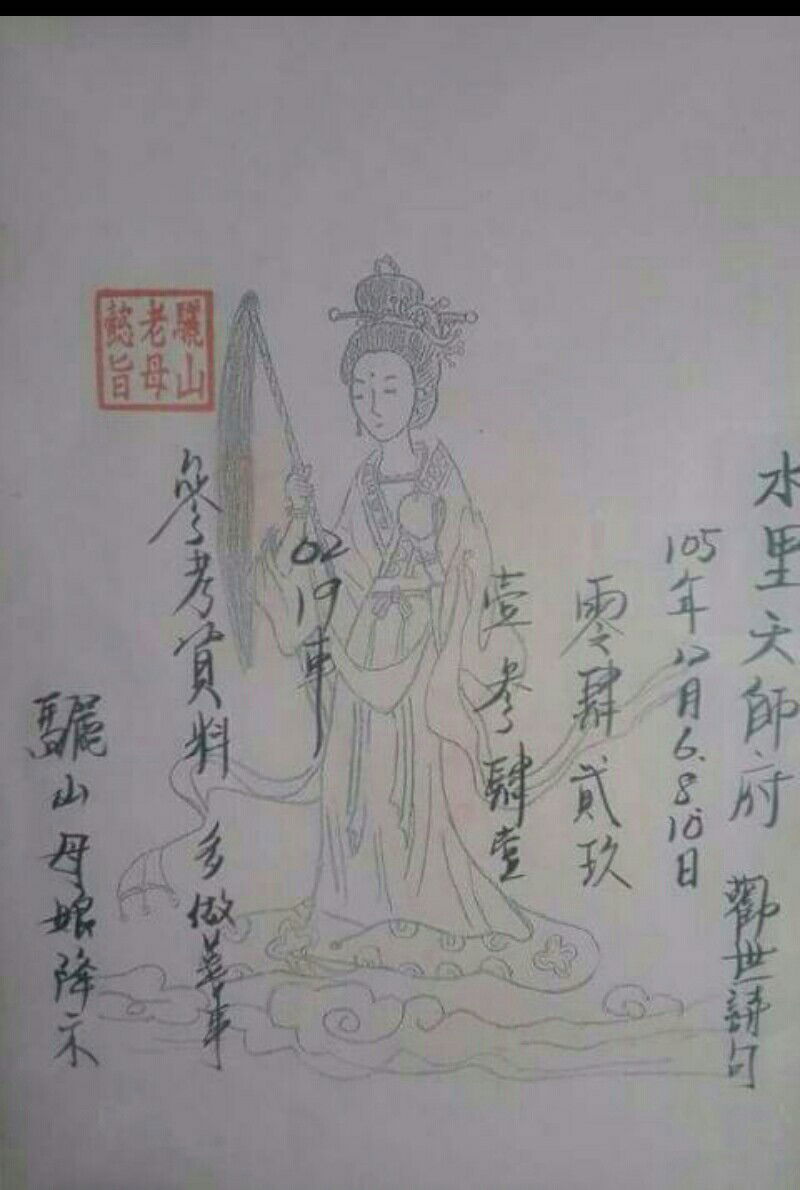 水里天師府
觀世詩句
105年12月6.8.10日
零肆貳玖
壹參肆壹
02
19車
參考資料
多做善事
驪山母娘降示
驪山
老母
懿旨